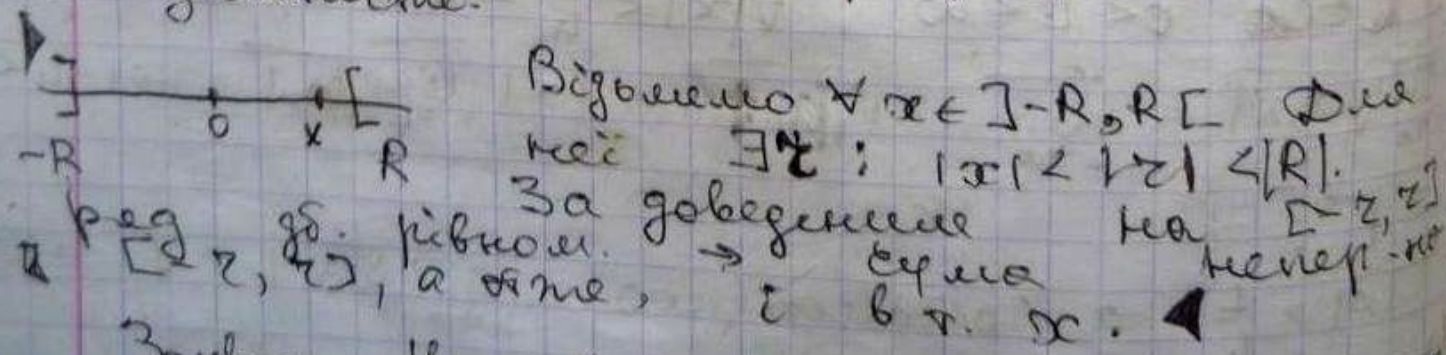 Візьмемо ∀ x ∈ ]-R, R[ Для
неї ∃ r : |x| < |r| < |R|.
-R 0 x R
За доведеним на [-r, r]
ряд зб. рівном. → сума непер-на
[-r, r], а отже, і в т. x.